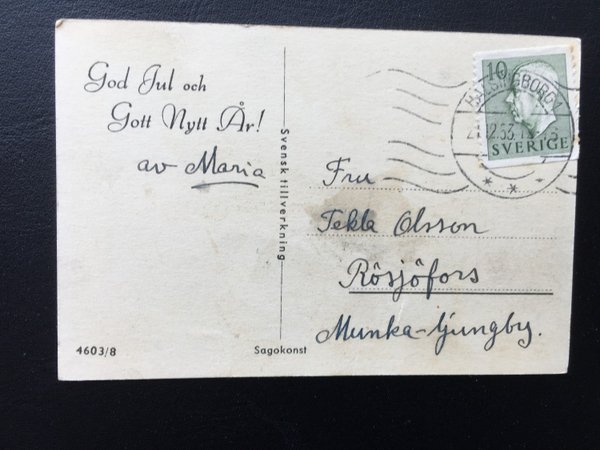 God Jul och
Gott Nytt År!
av Maria
Svensk tillverkning
4603/8
Sagokonst
10
SVERIGE
HÄLSINGBORG 1
Fru
Tekla Olsson
Rösjöfors
Munka-Ljungby.